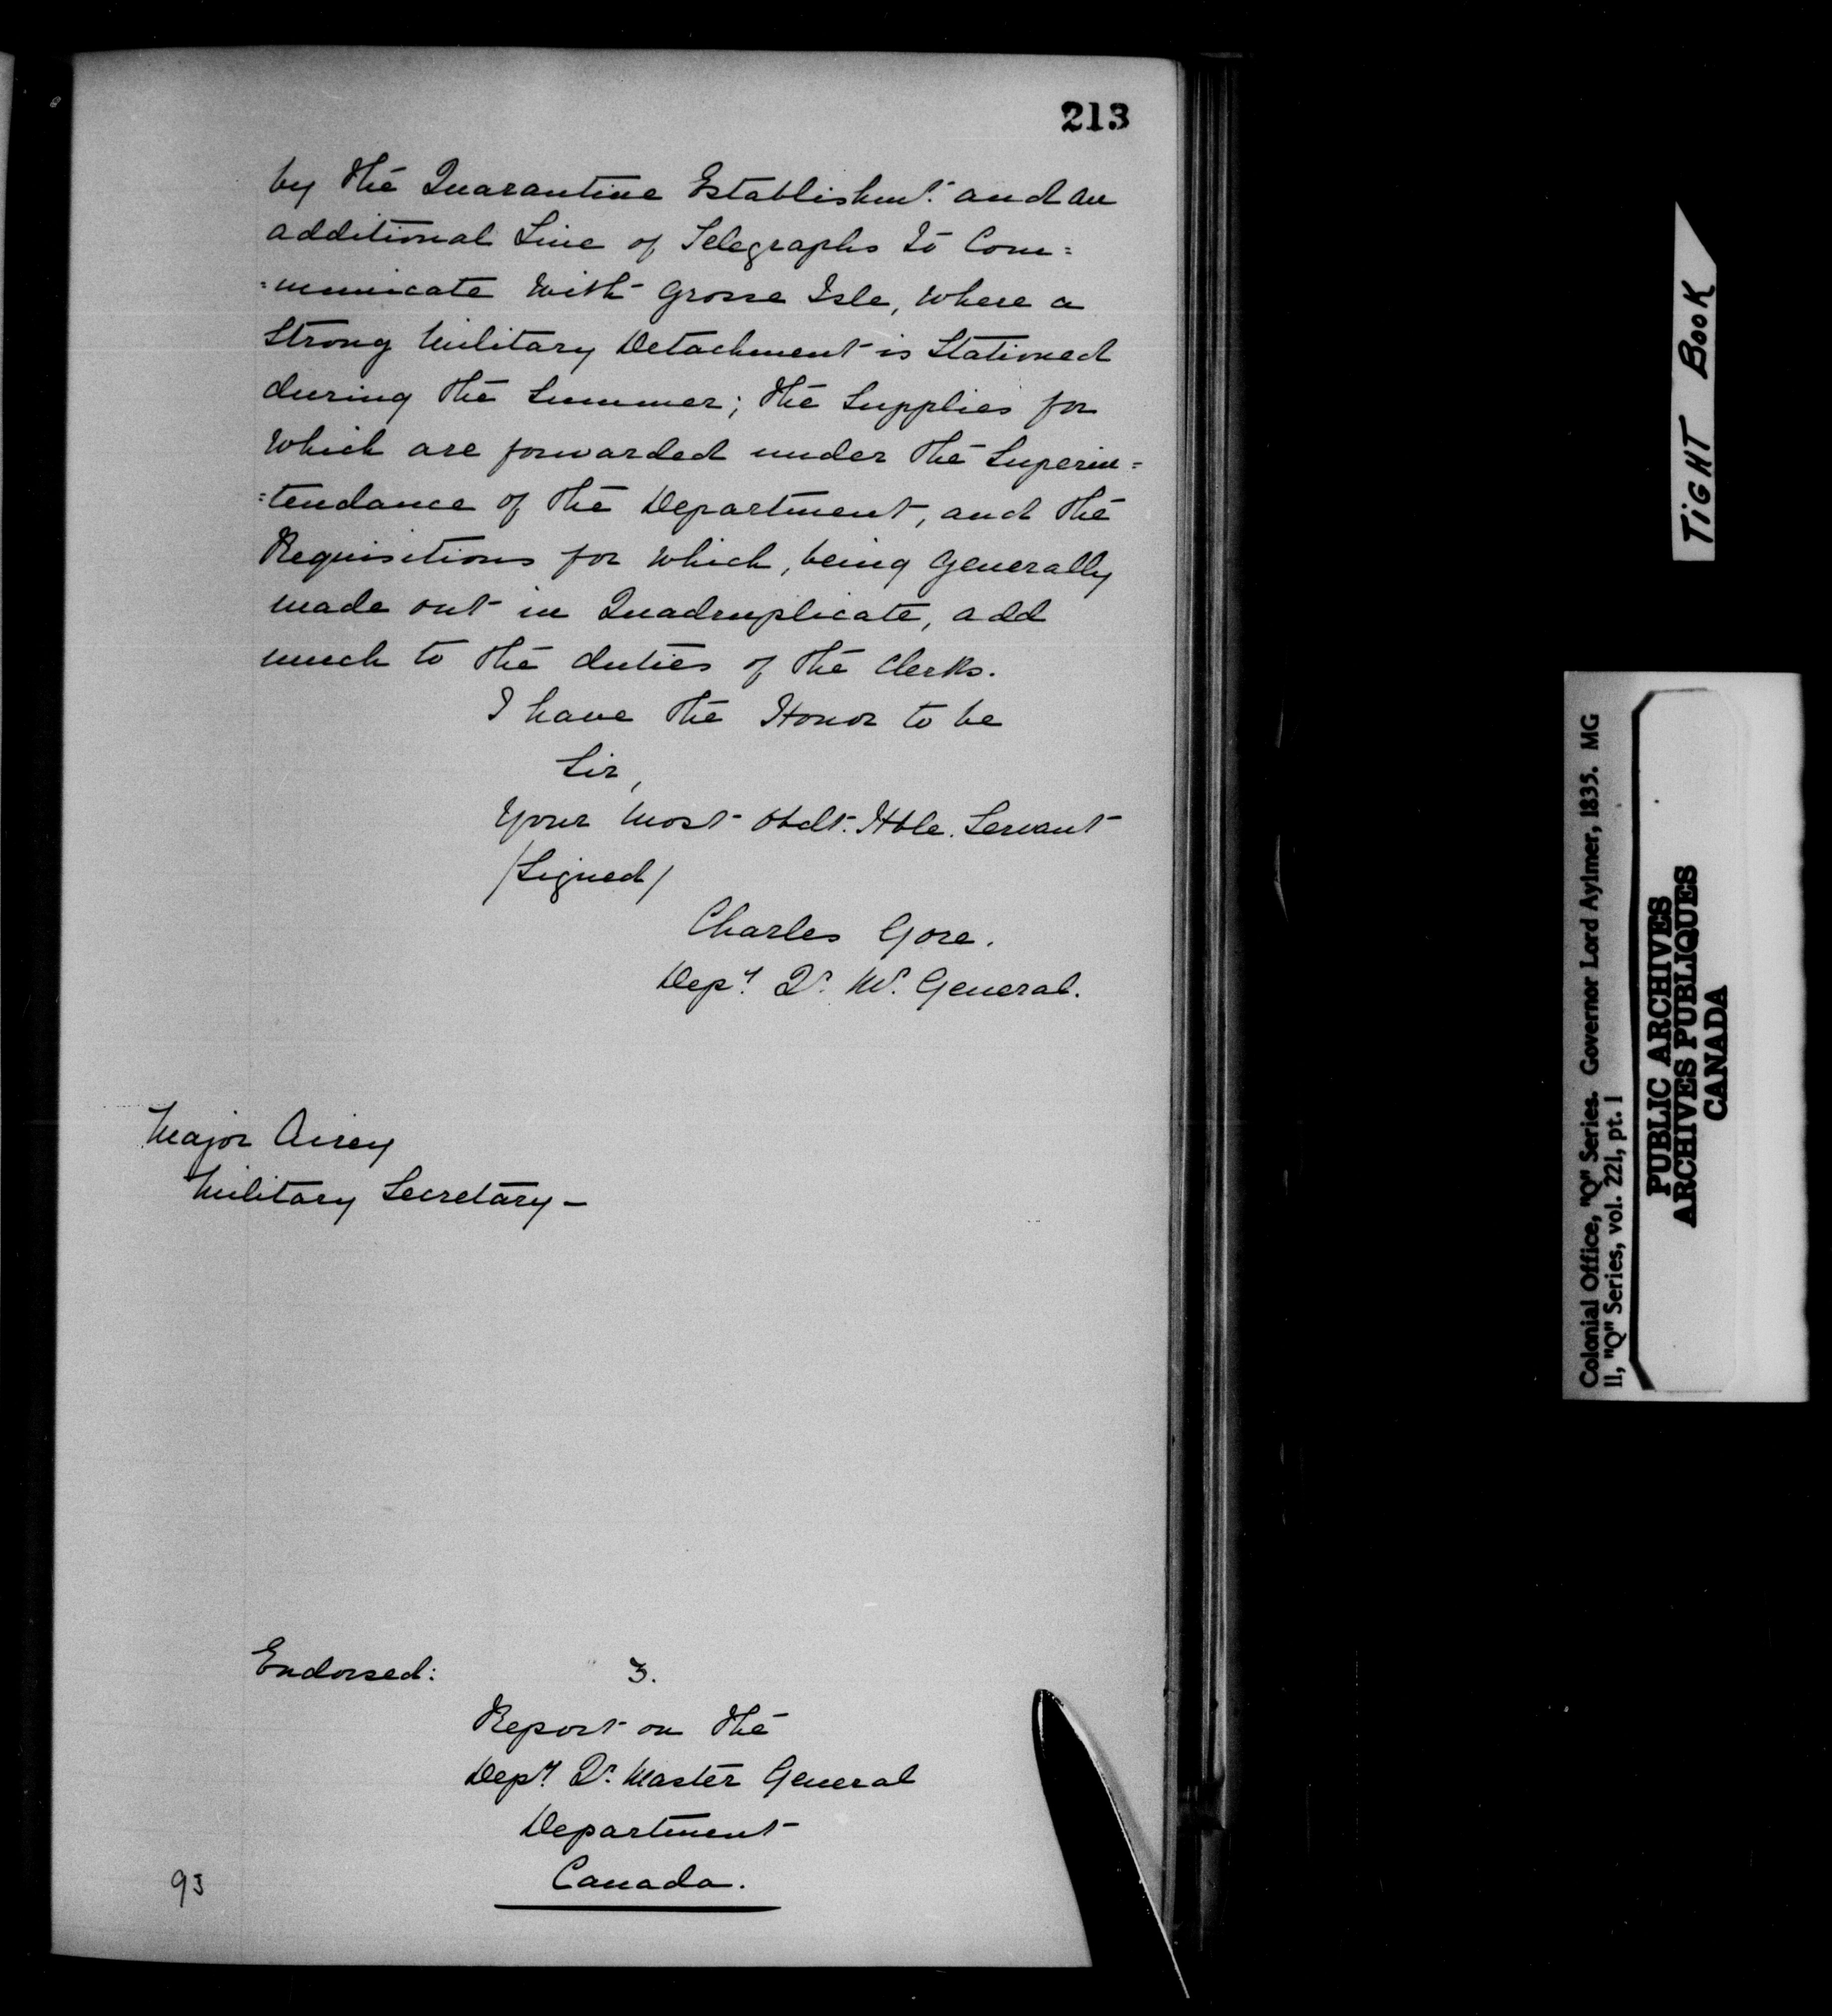 213
by the Quarantine Establishmt. and an
additional Line of Telegraphs to Com=
=municate with Grosse Isle, where a
Strong Military Detachment is Stationed
during the Summer; the Supplies for
which are forwarded under the Superin=
=tendance of the Department, and the
Requisitions for which, being generally
made out in Quadruplicate, add
much to the duties of the Clerks.
I have the Honor to be
Sir,
Your most Obdt. Hble. Servant
/Signed/
Charles Gore.
Depy. Qr. Mr. General.
Major Airey
Military Secretary —
Endorsed: 3.
Report on the
Depy. Qr. Master General
Department
Canada.
93
TIGHT BOOK
Colonial Office, "Q" Series. Governor Lord Aylmer, 1835. MG
11, "Q" Series, vol. 221, pt. 1
PUBLIC ARCHIVES
ARCHIVES PUBLIQUES
CANADA